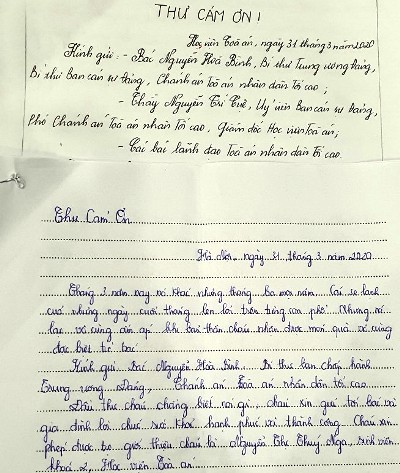 THƯ CÁM ƠN!
Học viện Toà án, ngày 31 tháng 3 năm 2020
Kính gửi: - Bác Nguyễn Hoà Bình, Bí thư Trung ương Đảng,
Bí thư Ban cán sự đảng, Chánh án Toà án nhân dân Tối cao;
- Thầy Nguyễn Trí Tuệ, Uỷ viên Ban cán sự đảng,
Phó Chánh án Toà án nhân Tối cao, Giám đốc Học viện Toà án;
- Các bác lãnh đạo Toà án nhân dân Tối cao.
Thư Cảm Ơn
Hà Nội, ngày 31 tháng 3 năm 2020
Tháng 3 năm nay và khác những tháng ba mọi năm. Cái se lạnh
của những ngày cuối tháng len lỏi trên từng con phố. Nhưng nó
lại vô cùng ấm áp khi bản thân cháu nhận được món quà vô cùng
đặc biệt từ bác.
Kính gửi Bác Nguyễn Hòa Bình. Bí thư ban chấp hành
Trung ương Đảng, Chánh án Tòa án nhân dân tối cao.
Đầu thư cháu chẳng biết nói gì, cháu xin gửi tới bác và
gia đình lời chúc sức khỏe hạnh phúc và thành công. Cháu xin
phép được tự giới thiệu cháu là Nguyễn Thị Thuý Nga, sinh viên
khoá 2, Học viện Tòa án.